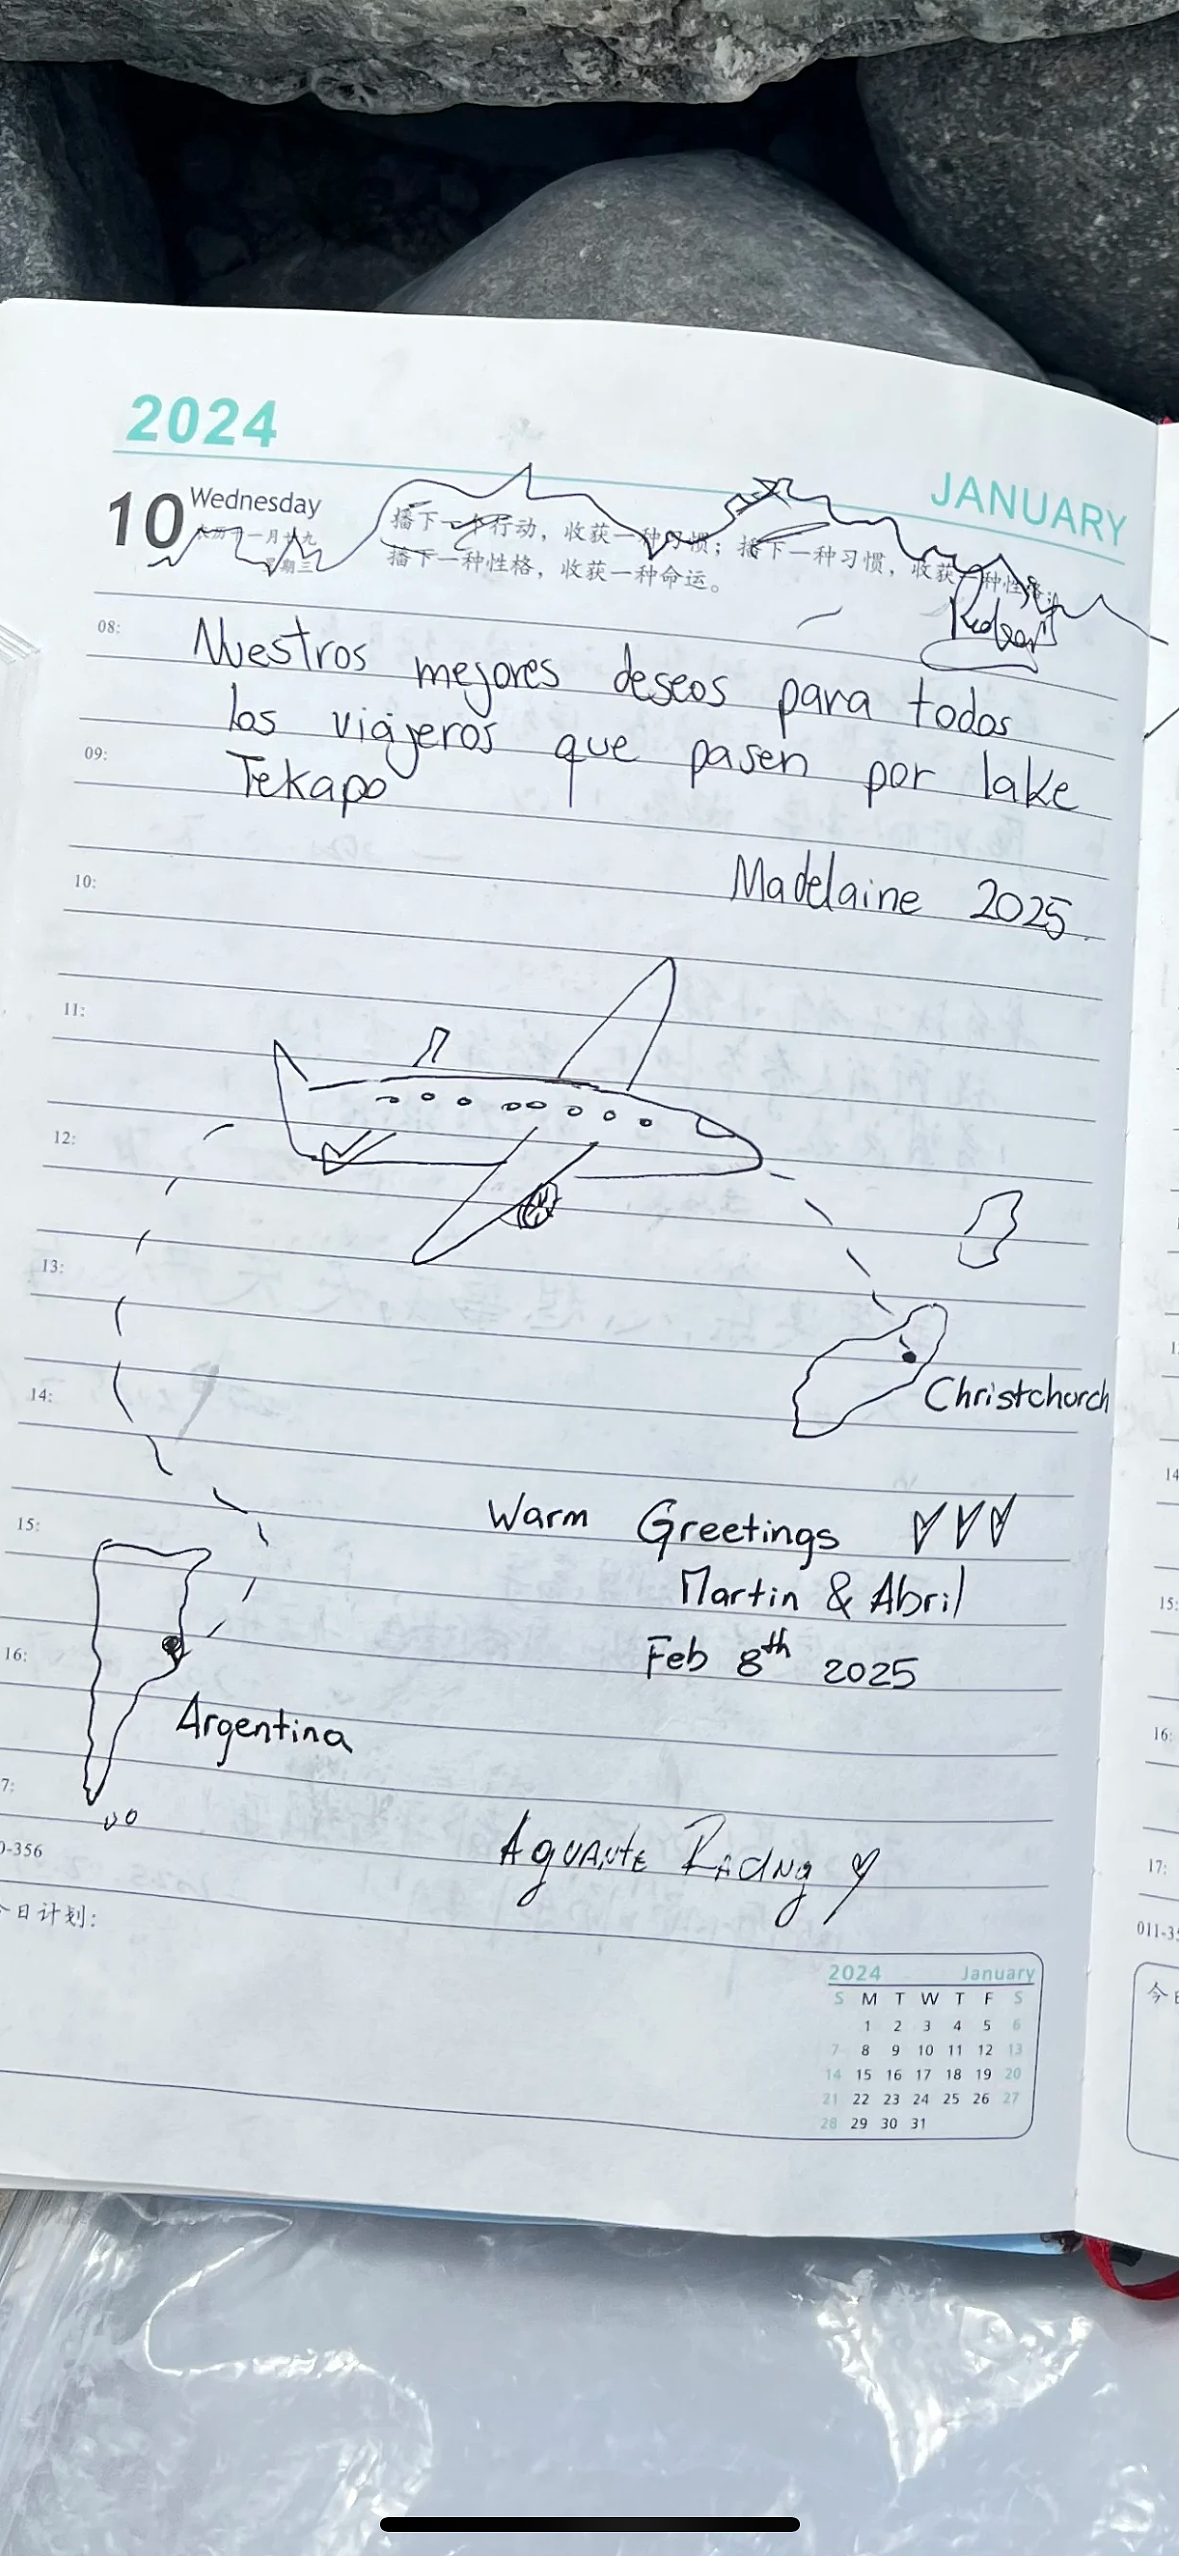 2024
JANUARY
10 Wednesday
农历十一月廿九
星期三
播下一个行动，收获一种习惯；播下一种习惯，收获一种性格；
播下一种性格，收获一种命运。
08:
Nuestros mejores deseos para todos
los viajeros que pasen por lake
09:
Tekapo
10:
Madelaine 2025
11:
12:
13:
Christchurch
14:
15:
Warm Greetings
Martin & Abril
Feb 8th 2025
16:
Argentina
7:
0-356
Aguante
今日计划:
2024 January
S M T W T F S
1 2 3 4 5 6
7 8 9 10 11 12 13
14 15 16 17 18 19 20
21 22 23 24 25 26 27
28 29 30 31
14
15:
16:
17:
011-35